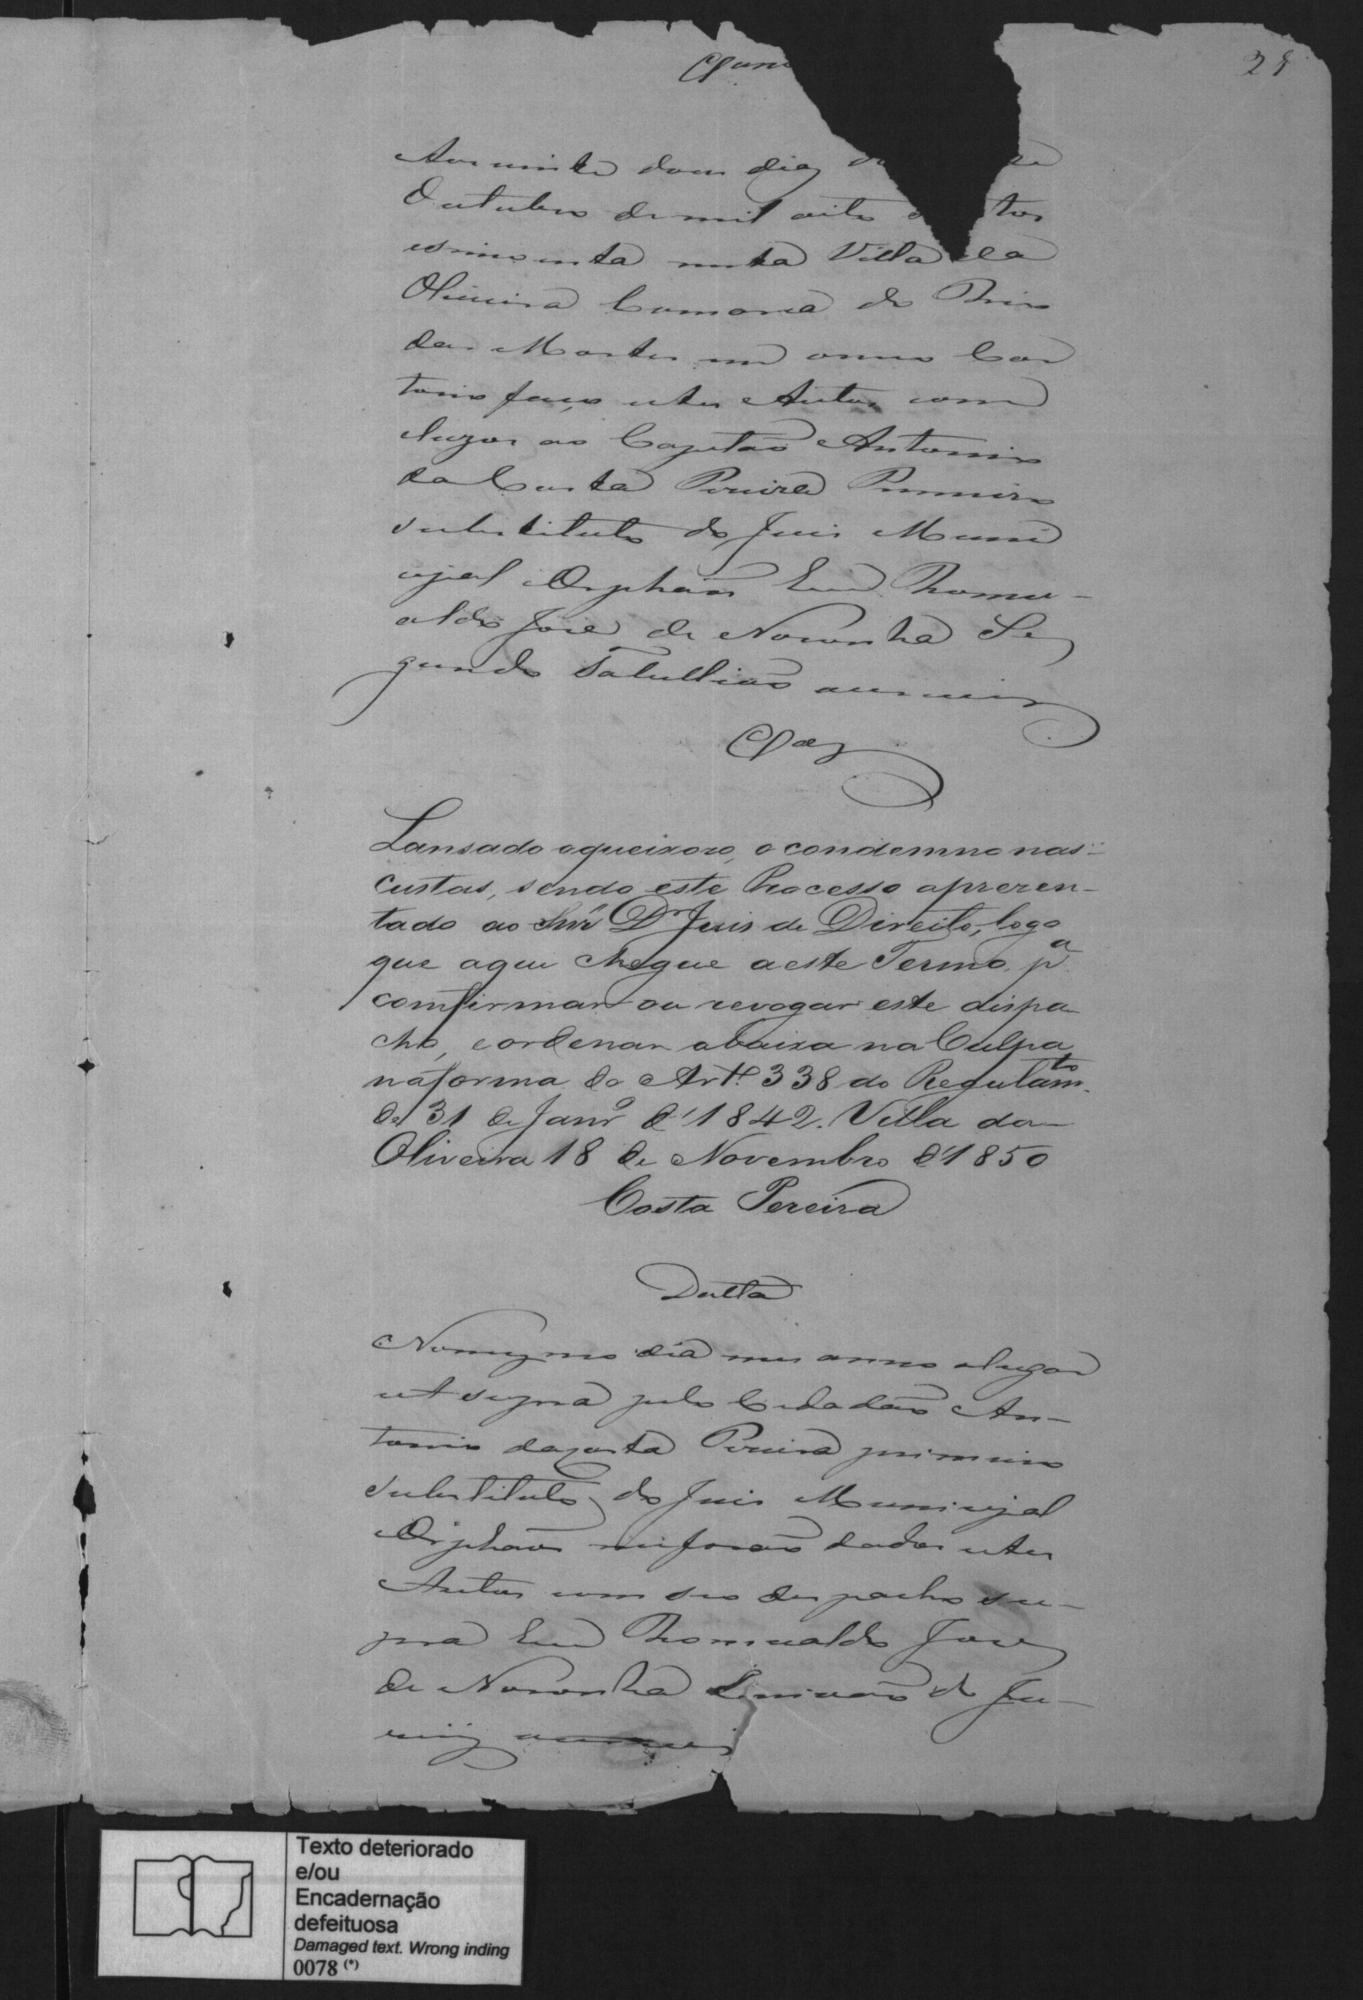 28
Aos vinte dous dias
Outubro de mil oito tos
e sincoenta nesta Villa da
Oliveira Comarca do Rio
das Mortes em o meu Car
torio faço estes Autos com
cluzos ao Capitão Antonio
da Costa Pereira Primeiro
substituto do Juis Muni
cipal Orphãos Eu Romu-
aldo José de Noronha Se
gundo Tabellião escrevi
Clas
Lansado o queixozo, o condemno nas
custas, sendo este Processo aprezen-
tado ao Snr Dr Juis de Direito, logo
que aqui chegue a este Termo, pa
comfirmar ou revogar este dispa
cho, e ordenar abaixa na Culpa
na forma do Arto. 338 do Regulamto.
de 31 de Janro d'1842. Villa da
Oliveira 18 de Novembro d'1850
Costa Pereira
Datta
No mesmo dia mes anno e lugar
ut supra pelo Cidadão An-
tonio da Costa Pereira primeiro
substituto do Juis Municipal
Orphãos me forão dados estes
Autos com seo despacho su-
pra Eu Romualdo José
de Noronha Escrivão do Ju-
Texto deteriorado
e/ou
Encadernação
defeituosa
Damaged text. Wrong inding
0078 (*)